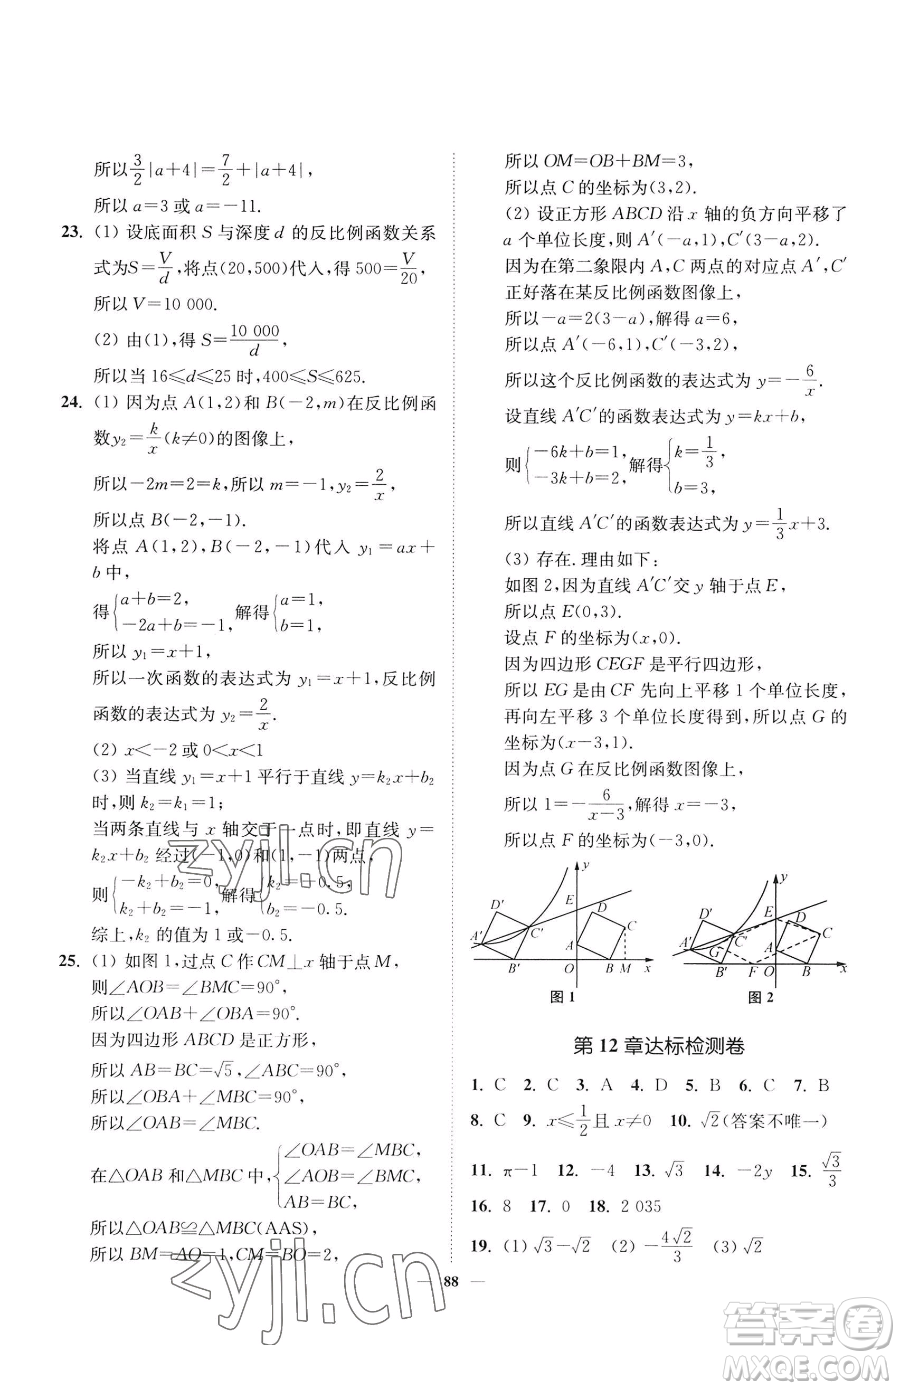 所以3/2|a+4|=7/2+|a+4|,
所以 a=3 或 a=-11.
23. (1) 设底面积 S 与深度 d 的反比例函数关系
式为S=V/d,将点(20,500)代入,得 500=V/20,
所以 V=10 000.
(2) 由(1),得 S=10 000/d,
所以当 16≤d≤25 时,400≤S≤625.
24. (1) 因为点 A(1,2)和 B(-2,m)在反比例函
数y₂=k/x(k≠0)的图像上,
所以-2m=2=k,所以 m=-1,y₂=2/x,
所以点 B(-2,-1).
将点 A(1,2),B(-2,-1)代入 y₁=ax+
b 中,
得{a+b=2, -2a+b=-1,解得{a=1, b=1,
所以 y₁=x+1,
所以一次函数的表达式为 y₁=x+1,反比例
函数的表达式为 y₂=2/x.
(2) x<-2 或 0<x<1
(3) 当直线 y₁=x+1 平行于直线 y=k₂x+b₂
时,则 k₂=k₁=1;
当两条直线与 x 轴交于一点时,即直线 y=
k₂x+b₂ 经过(-1,0)和(1,-1)两点,
则{-k₂+b₂=0, k₂+b₂=-1,解得{k₂=-0.5, b₂=-0.5.
综上,k₂ 的值为 1 或-0.5.
25. (1) 如图 1,过点 C 作 CM⊥x 轴于点 M,
则∠AOB=∠BMC=90°,
所以∠OAB+∠OBA=90°.
因为四边形 ABCD 是正方形,
所以 AB=BC=√5,∠ABC=90°,
所以∠OBA+∠MBC=90°,
所以∠OAB=∠MBC.
在△OAB 和△MBC 中,{∠OAB=∠MBC, ∠AOB=∠BMC, AB=BC,
所以△OAB≌△MBC(AAS),
所以 BM=AO=1,CM=BO=2,
所以 OM=OB+BM=3,
所以点 C 的坐标为(3,2).
(2) 设正方形 ABCD 沿 x 轴的负方向平移了
a 个单位长度,则 A′(-a,1),C′(3-a,2).
因为在第二象限内 A,C 两点的对应点 A′,C′
正好落在某反比例函数图像上,
所以-a=2(3-a),解得 a=6,
所以点 A′(-6,1),C′(-3,2),
所以这个反比例函数的表达式为 y=-6/x.
设直线 A′C′的函数表达式为 y=kx+b,
则{-6k+b=1, -3k+b=2,解得{k=1/3, b=3,
所以直线 A′C′的函数表达式为 y=1/3x+3.
(3) 存在.理由如下:
如图 2,因为直线 A′C′交 y 轴于点 E,
所以点 E(0,3).
设点 F 的坐标为(x,0).
因为四边形 CEGF 是平行四边形,
所以 EG 是由 CF 先向上平移 1 个单位长度,
再向左平移 3 个单位长度得到,所以点 G 的
坐标为(x-3,1).
因为点 G 在反比例函数图像上,
所以 1=-6/(x-3),解得 x=-3,
所以点 F 的坐标为(-3,0).
y E D′ D C′ C A′ A B′ O B M x
图 1
y E D′ D C′ C A′ G A B′ F O B x
图 2
第 12 章达标检测卷
1. C 2. C 3. A 4. D 5. B 6. C 7. B
8. C 9. x≤1/2且 x≠0 10. √2(答案不唯一)
11. π-1 12. -4 13. √3 14. -2y 15. √3/3
16. 8 17. 0 18. 2 035
19. (1) √3-√2 (2) -4√2/3 (3) √2
— 88 —
zyjl.cn
zyjl.cn
答案圈
MXQE.COM